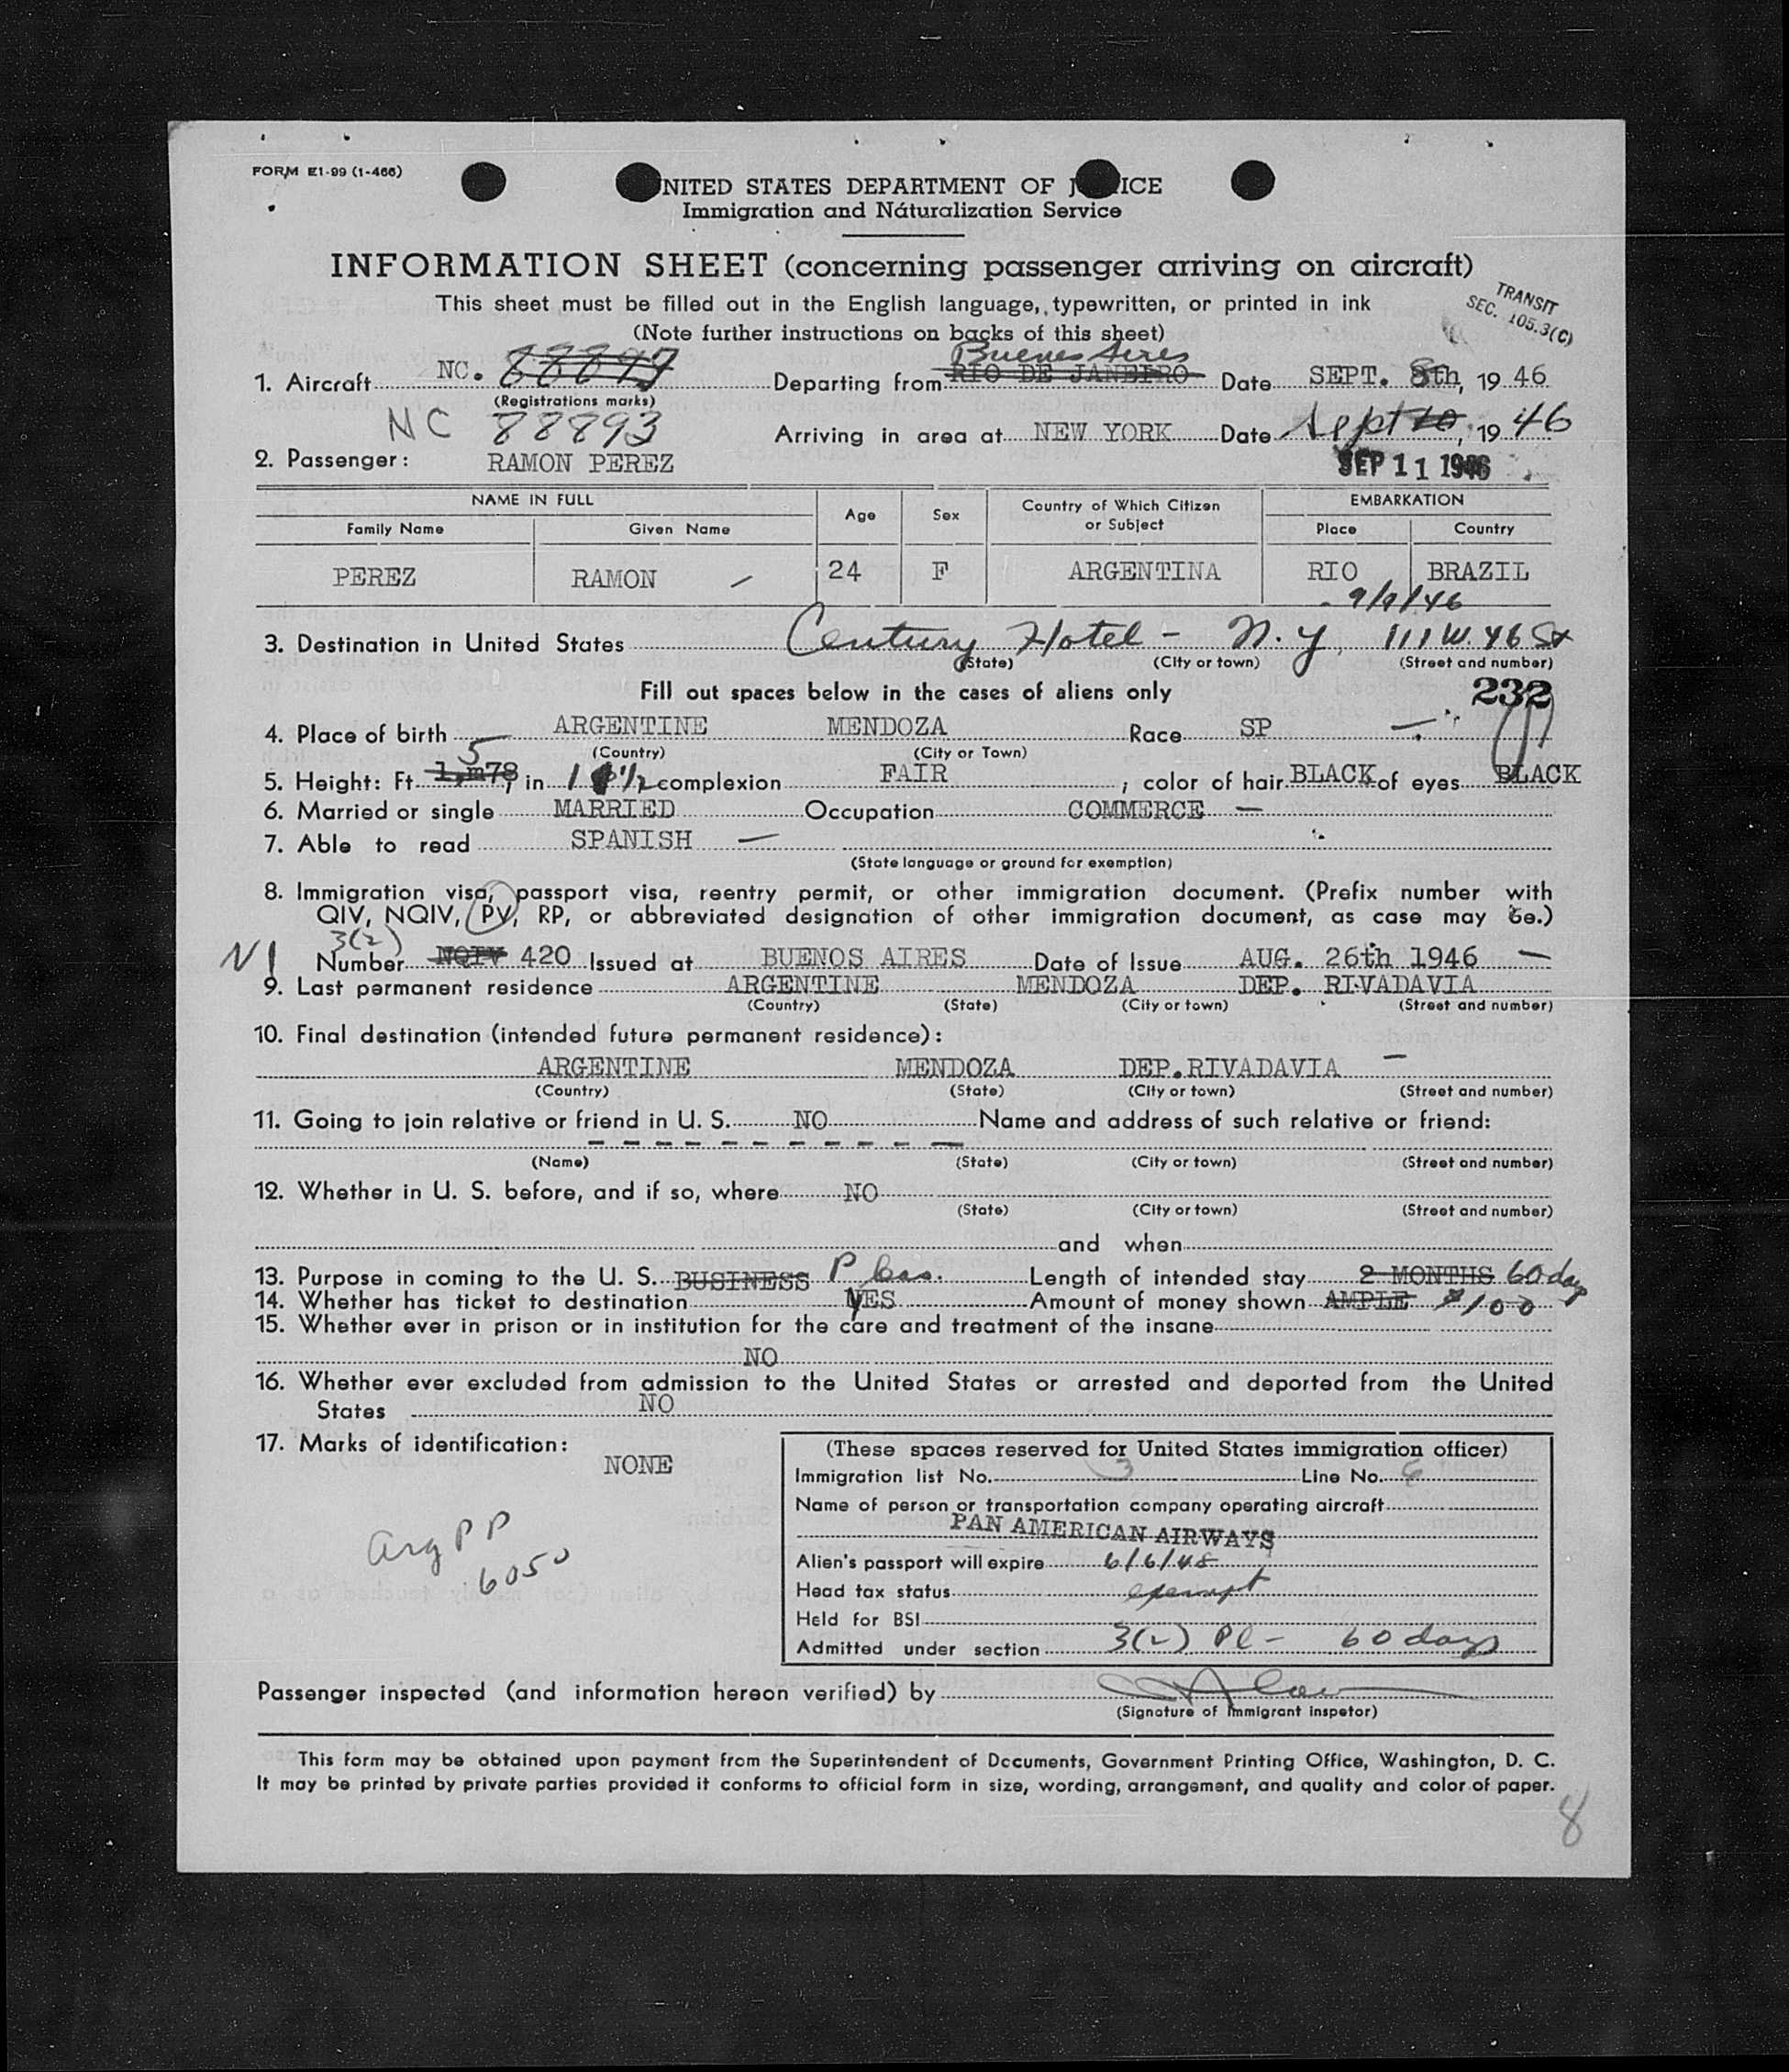 FORM E1-99 (1-466)
NITED STATES DEPARTMENT OF J ICE
Immigration and Náturalization Service
INFORMATION SHEET (concerning passenger arriving on aircraft)
This sheet must be filled out in the English language, typewritten, or printed in ink
TRANSIT
SEC. 105.3(C)
(Note further instructions on backs of this sheet)
Buenos Aires
1. Aircraft NC. Departing from RIO DE JANEIRO Date SEPT. 8th, 19 46
(Registrations marks)
NC 88893 Arriving in area at NEW YORK Date Sept 10, 19 46
2. Passenger: RAMON PEREZ SEP 11 1946
NAME IN FULL Age Sex Country of Which Citizen or Subject EMBARKATION
Family Name Given Name Place Country
PEREZ RAMON — 24 F ARGENTINA RIO BRAZIL
9/9/46
3. Destination in United States Century Hotel - N.Y. 111 W. 46 St
(State) (City or town) (Street and number)
Fill out spaces below in the cases of aliens only 232
4. Place of birth ARGENTINE MENDOZA Race SP —
(Country) (City or Town)
5
5. Height: Ft. 1,m78, in. 1/2 complexion FAIR ; color of hair BLACK of eyes BLACK
6. Married or single MARRIED Occupation COMMERCE —
7. Able to read SPANISH —
(State language or ground for exemption)
8. Immigration visa, passport visa, reentry permit, or other immigration document. (Prefix number with
QIV, NQIV, PV, RP, or abbreviated designation of other immigration document, as case may be.)
3(2)
Number NQIV 420 Issued at BUENOS AIRES Date of Issue AUG. 26th 1946 —
9. Last permanent residence ARGENTINE MENDOZA DEP. RIVADAVIA
(Country) (State) (City or town) (Street and number)
10. Final destination (intended future permanent residence):
ARGENTINE MENDOZA DEP.RIVADAVIA —
(Country) (State) (City or town) (Street and number)
11. Going to join relative or friend in U. S. NO Name and address of such relative or friend:
— — — — — — — — — —
(Name) (State) (City or town) (Street and number)
12. Whether in U. S. before, and if so, where NO
(State) (City or town) (Street and number)
and when
13. Purpose in coming to the U. S. BUSINESS P bus. Length of intended stay 2 MONTHS 60 days
14. Whether has ticket to destination YES Amount of money shown AMPLE $100
15. Whether ever in prison or in institution for the care and treatment of the insane
NO
16. Whether ever excluded from admission to the United States or arrested and deported from the United
States NO
17. Marks of identification:
NONE
Arg PP
6050
(These spaces reserved for United States immigration officer)
Immigration list No. 3 Line No. 6
Name of person or transportation company operating aircraft
PAN AMERICAN AIRWAYS
Alien's passport will expire 6/6/48
Head tax status exempt
Held for BSI
Admitted under section 3(2) Pl - 60 days
Passenger inspected (and information hereon verified) by
(Signature of Immigrant inspetor)
This form may be obtained upon payment from the Superintendent of Documents, Government Printing Office, Washington, D. C.
It may be printed by private parties provided it conforms to official form in size, wording, arrangement, and quality and color of paper.
8